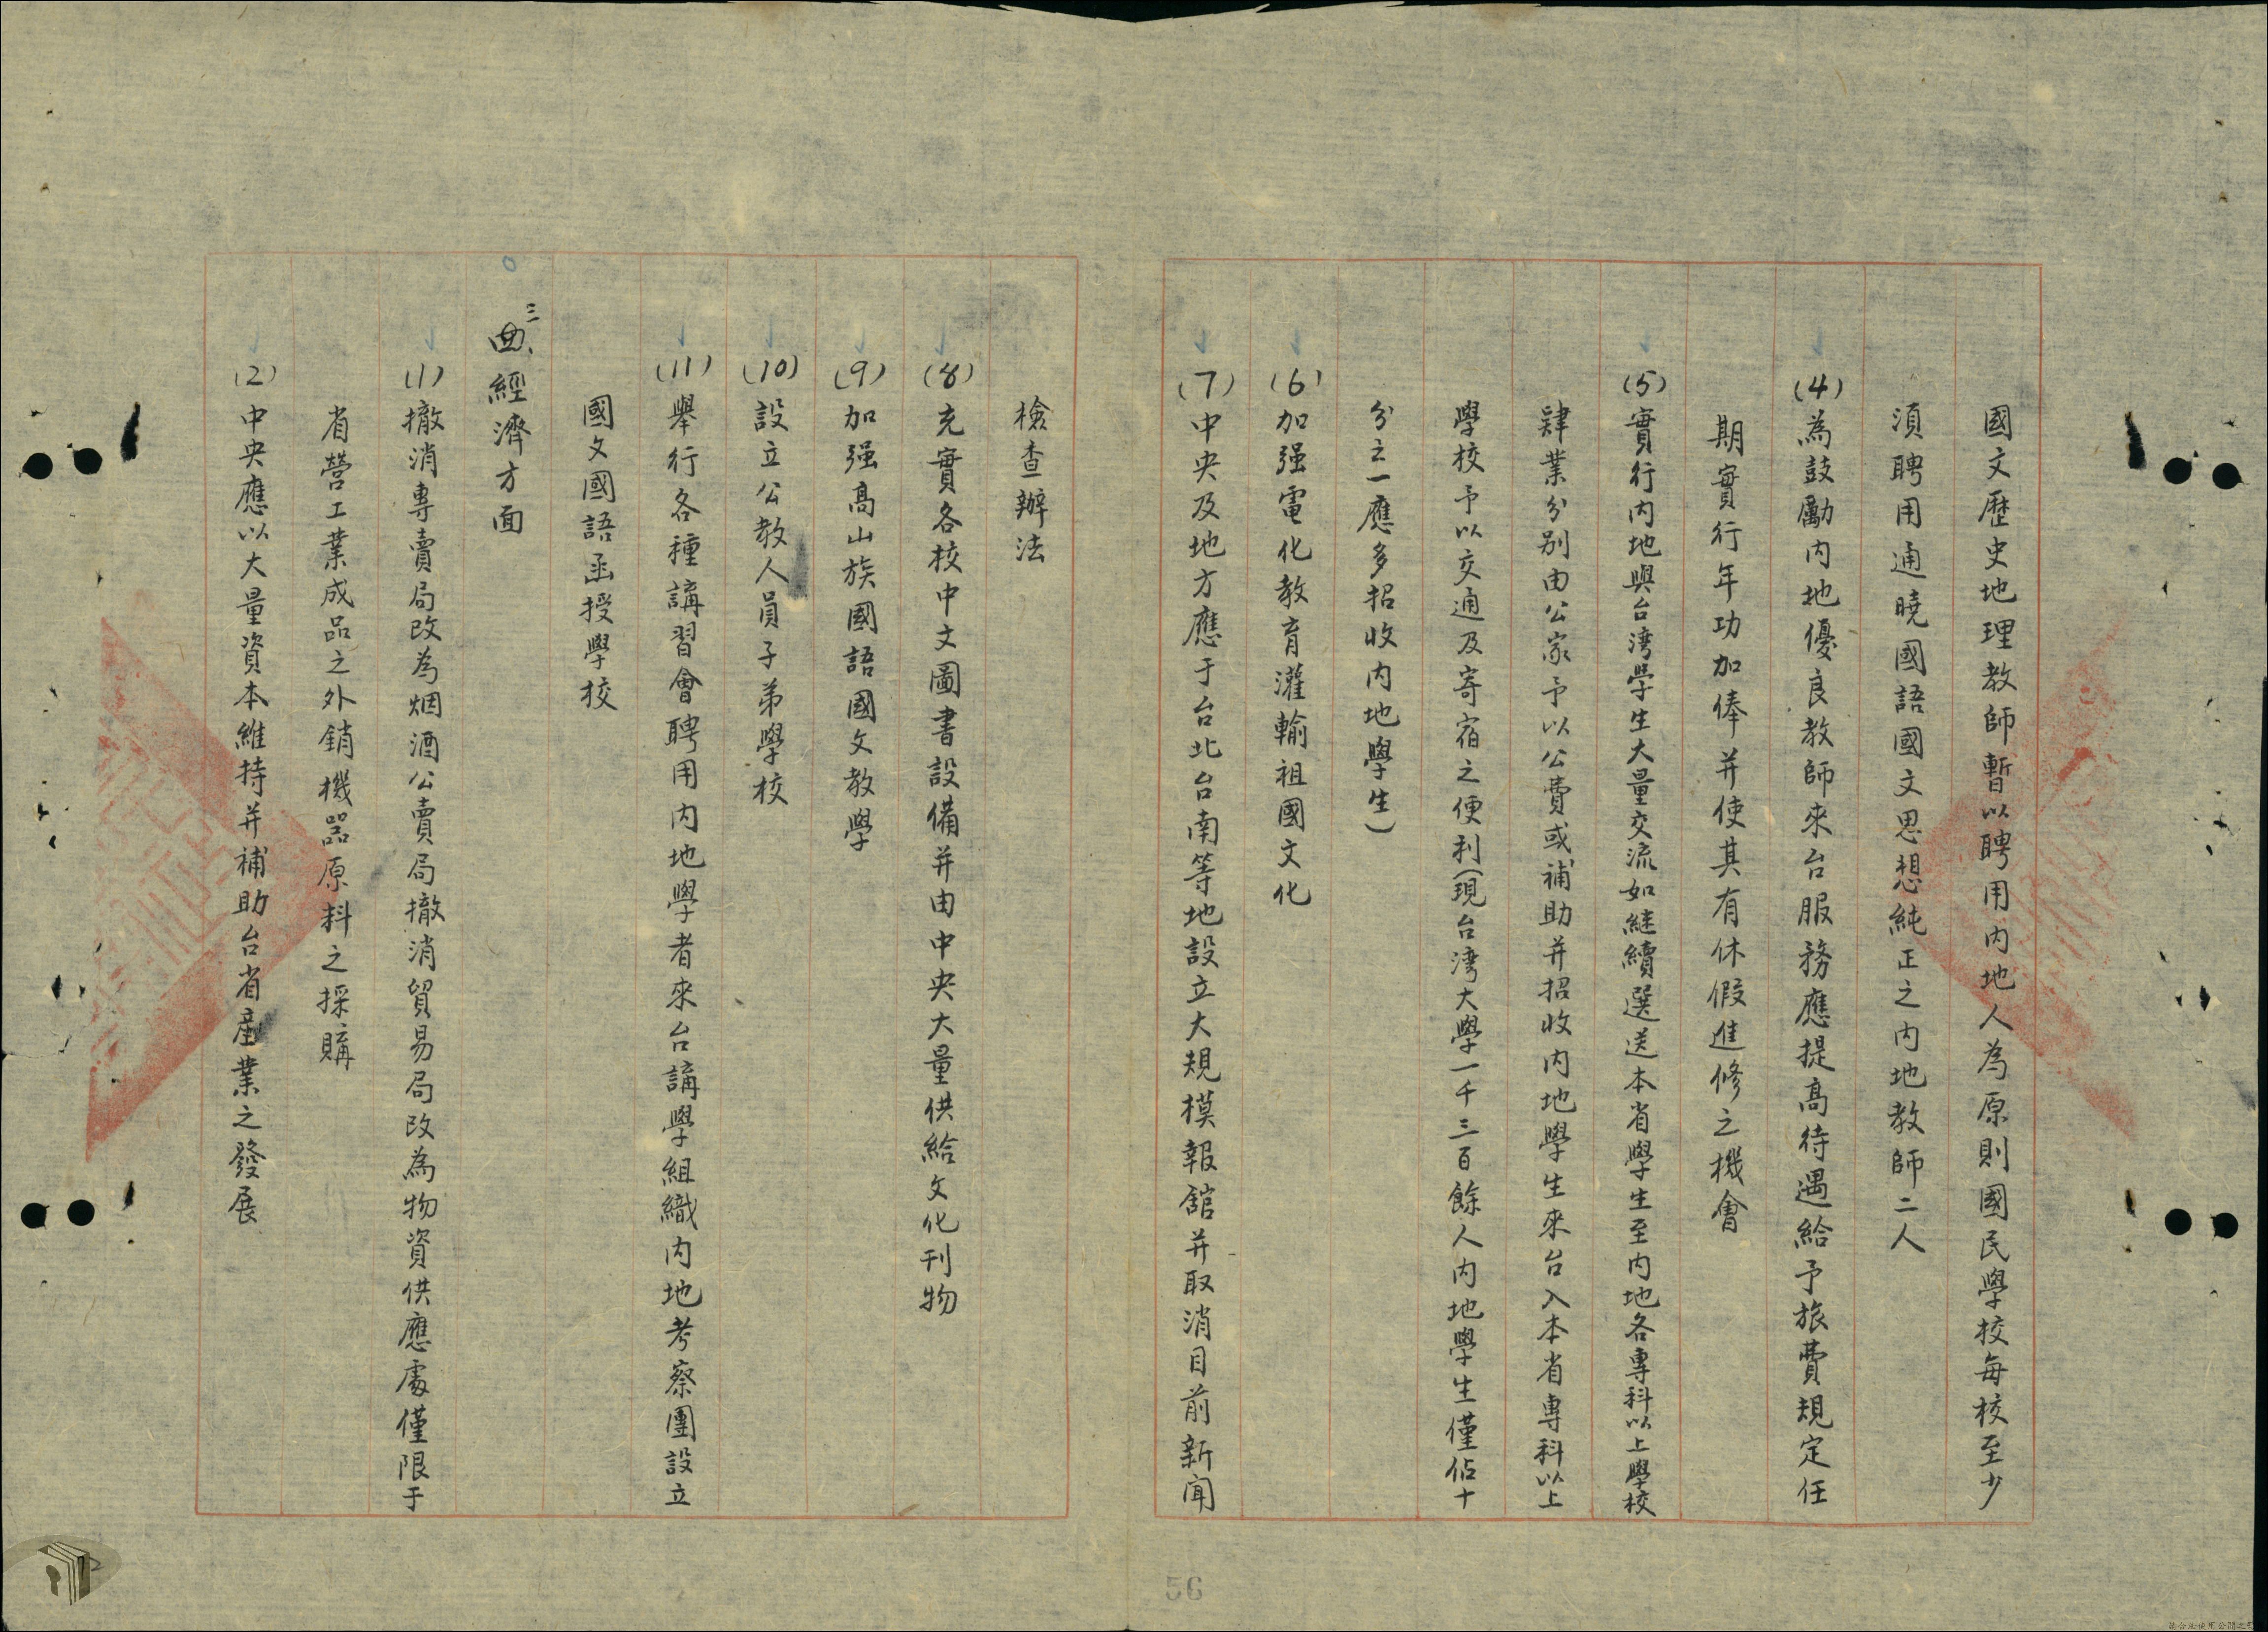 國文歷史地理教師暫以聘用內地人為原則國民學校每校至少
須聘用通曉國語國文思想純正之內地教師二人
(4)為鼓勵內地優良教師來台服務應提高待遇給予旅費規定任
期實行年功加俸并使其有休假進修之機會
(5)實行內地與台湾學生大量交流如継續選送本省學生至內地各專科以上學校
肄業分別由公家予以公費或補助并招收內地學生來台入本省專科以上
學校予以交通及寄宿之便利(現台湾大學一千三百餘人內地學生僅佔十
分之一應多招收內地學生)
(6)加强電化教育灌輸祖國文化
(7)中央及地方應于台北台南等地設立大規模報舘并取消目前新聞
檢查辦法
(8)充實各校中文圖書設備并由中央大量供給文化刊物
(9)加强高山族國語國文教學
(10)設立公教人員子弟學校
(11)舉行各種講習會聘用內地學者來台講學組織內地考察團設立
國文國語函授學校
三、經濟方面
(1)撤消專賣局改為烟酒公賣局撤消貿易局改為物資供應處僅限于
省營工業成品之外銷機器原料之採購
(2)中央應以大量資本維持并補助台省產業之發展
56